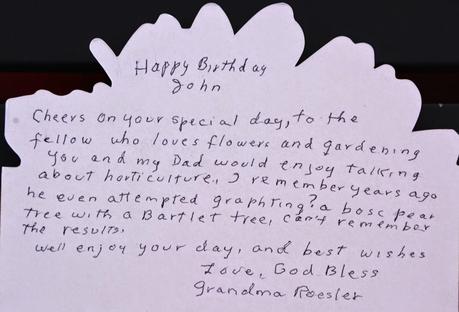 Happy Birthday
John
Cheers on your special day, to the
fellow who loves flowers and gardening
you and my Dad would enjoy talking
about horticulture., I remember years ago
he even attempted graphting? a bosc pear
tree with a Bartlet tree, can't remember
the results.
Well enjoy your day, and best wishes
Love, God Bless
Grandma Roesler